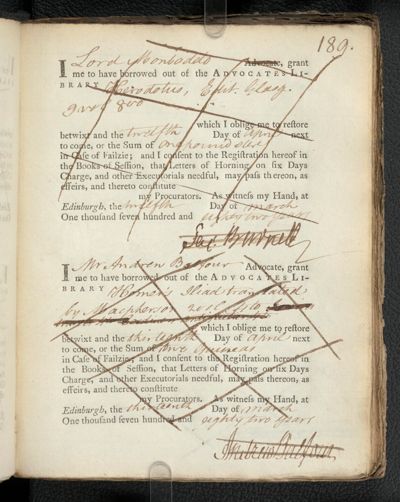 189.
I Lord Monboddo Advocate, grant
me to have borrowed out of the ADVOCATES LI-
BRARY Herodotus, Edit. Glasg.
9 vol 8vo
which I oblige me to reſtore
betwixt and the twelfth Day of April next
to come, or the Sum of one pound
in Caſe of Failzie; and I conſent to the Regiſtration hereof in
the Books of Seſſion, that Letters of Horning on ſix Days
Charge, and other Executorials needful, may paſs thereon, as
effeirs, and thereto conſtitute
my Procurators. As witneſs my Hand, at
Edinburgh, the twelfth Day of March
One thouſand ſeven hundred and eighty two years
Jas. Burnett
I Mr Andrew Balfour Advocate, grant
me to have borrowed out of the ADVOCATES LI-
BRARY Homers Iliad translated
by Macpherson 2 vol 4to
which I oblige me to reſtore
betwixt and the thirteenth Day of April next
to come, or the Sum of Guineas
in Caſe of Failzie; and I conſent to the Regiſtration hereof in
the Books of Seſſion, that Letters of Horning on ſix Days
Charge, and other Executorials needful, may paſs thereon, as
effeirs, and thereto conſtitute
my Procurators. As witneſs my Hand, at
Edinburgh, the thirteenth Day of March
One thouſand ſeven hundred and eighty two years
Andrew Balfour